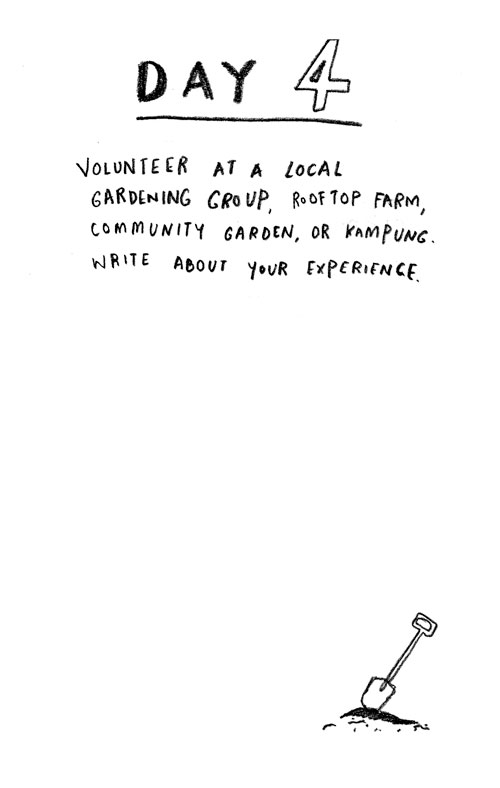 DAY 4
VOLUNTEER AT A LOCAL
GARDENING GROUP, ROOFTOP FARM,
COMMUNITY GARDEN, OR KAMPUNG.
WRITE ABOUT YOUR EXPERIENCE.